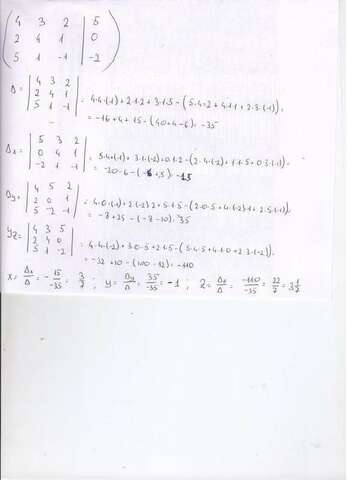 4 3 2 | 5
2 4 1 | 0
5 1 -1 | -2
Δ = | 4 3 2 | 2 4 1 | 5 1 -1 | = 4·4·(-1)+2·1·2+3·1·5-(5·4·2+4·1·1+2·3·(-1))=
= -16+4+15-(40+4-6)=-35
Δx = | 5 3 2 | 0 4 1 | -2 1 -1 | = 5·4·(-1)+3·1·(-2)+0·1·2-(2·4·(-2)+1·1·5+0·3·(-1))=
= -20-6-(-16+5)=-15
Δy = | 4 5 2 | 2 0 1 | 5 -2 -1 | = 4·0·(-1)+2·(-2)·2+5·1·5-(2·0·5+4·(-2)·1+2·5·(-1))=
= -8+25-(-8-10)=35
Yz = | 4 3 5 | 2 4 0 | 5 1 -2 | = 4·4·(-2)+3·0·5+2·1·5-(5·4·5+4·1·0+2·3·(-2))=
= -32+10-(100-12)=-110
x = Δx/Δ = -15/-35 = 3/7 ; y = Δy/Δ = 35/-35 = -1 ; z = Δz/Δ = -110/-35 = 22/7 = 3 1/7